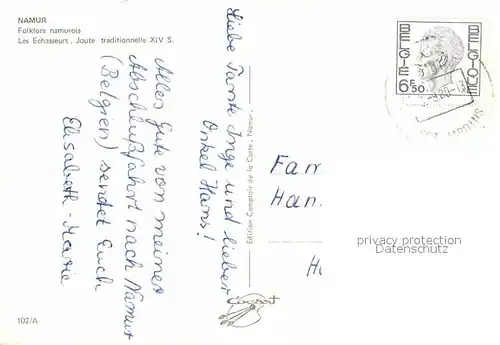 NAMUR
Folklore namurois
Les Echasseurs, Joute traditionnelle XIV S.
Liebe Tante Inge und lieber
Onkel Hans!
Alles Gute von meiner
Abschlußfahrt nach Namur
(Belgien) sendet Euch
Elisabeth-Maria
102/A
Edition Comptoir de la Caste, Namur.
cogart
BELGIE
BELGIQUE
6F50
Fam
Han
privacy protection
Datenschutz